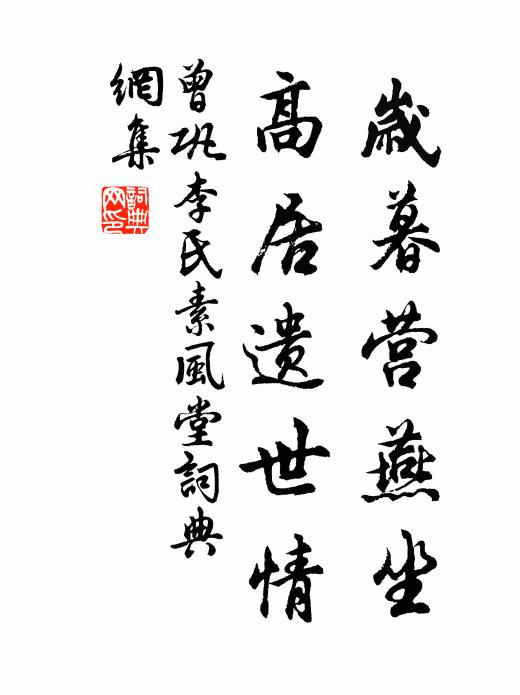 歲暮营燕坐
高居遺世情
曾巩李氏素風堂詞典
網集
詞典
网印